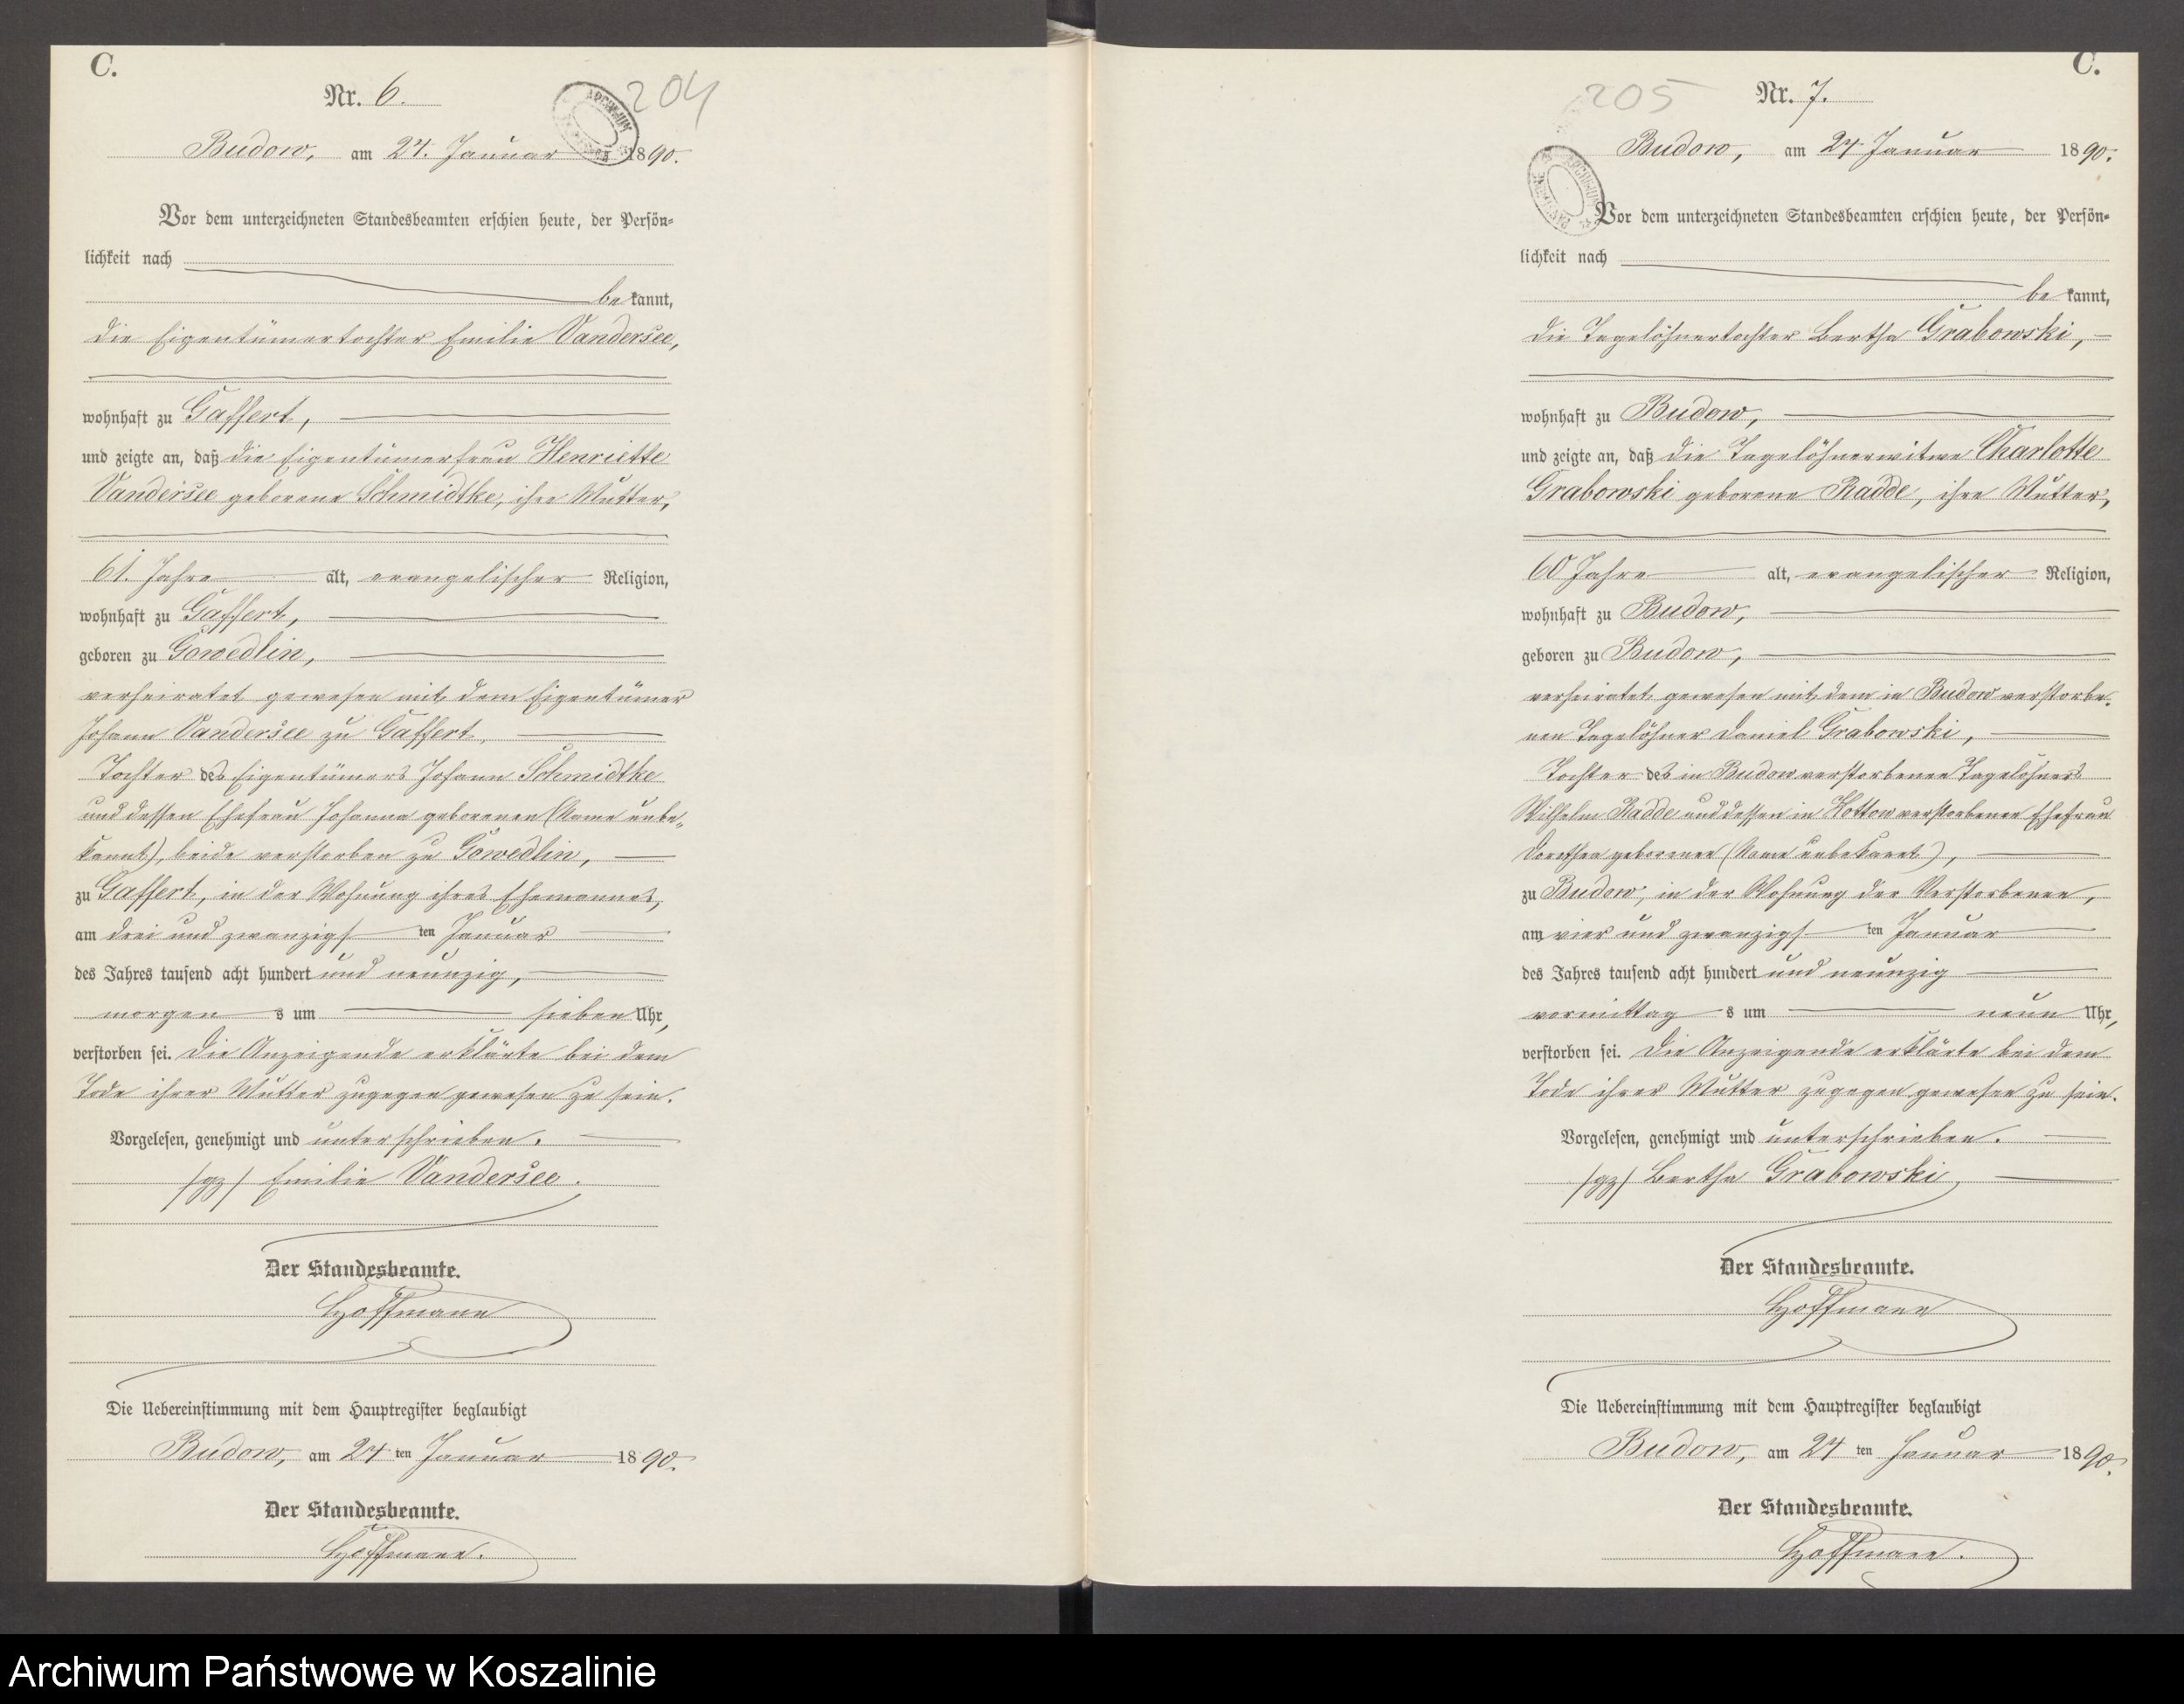 C.
Nr. 6.
204
Budow, am 24. Januar 1890.
Vor dem unterzeichneten Standesbeamten erschien heute, der Persön-
lichkeit nach
be kannt,
die Eigentümertochter Emilie Vandersee,
wohnhaft zu Gaffert,
und zeigte an, daß die Eigentümerfrau Henriette
Vandersee geborene Schmidtke, ihre Mutter,
61. Jahre alt, evangelischer Religion,
wohnhaft zu Gaffert,
geboren zu Gowedlin,
verheiratet gewesen mit dem Eigentümer
Johann Vandersee zu Gaffert,
Tochter des Eigentümers Johann Schmidtke
und dessen Ehefrau Johanna geborenen (Name unbe-
kannt), beide verstorben zu Gowedlin,
zu Gaffert, in der Wohnung ihres Ehemannes,
am drei und zwanzigsten Januar
des Jahres tausend acht hundert und neunzig,
morgen s um sieben Uhr,
verstorben sei. Die Anzeigende erklärte bei dem
Tode ihrer Mutter zugegen gewesen zu sein.
Vorgelesen, genehmigt und unterschrieben.
/gz/ Emilie Vandersee.
Der Standesbeamte.
Hoffmann
Die Uebereinstimmung mit dem Hauptregister beglaubigt
Budow, am 24 ten Januar 1890.
Der Standesbeamte.
Hoffmann.
C.
205
Nr. 7.
Budow, am 24 Januar 1890.
Vor dem unterzeichneten Standesbeamten erschien heute, der Persön-
lichkeit nach
be kannt,
die Tagelöhnertochter Bertha Grabowski,
wohnhaft zu Budow,
und zeigte an, daß die Tagelöhnerwitwe Charlotte
Grabowski geborene Radde, ihre Mutter,
60 Jahre alt, evangelischer Religion,
wohnhaft zu Budow,
geboren zu Budow,
verheiratet gewesen mit dem in Budow verstorbe-
nen Tagelöhner Daniel Grabowski,
Tochter des in Budow verstorbenen Tagelöhners
Wilhelm Radde und dessen in Kottow verstorbenen Ehefrau
Dorothea geborenen (Name unbekannt),
zu Budow, in der Wohnung der Verstorbenen,
am vier und zwanzigsten Januar
des Jahres tausend acht hundert und neunzig
vormittag s um neun Uhr,
verstorben sei. Die Anzeigende erklärte bei dem
Tode ihrer Mutter zugegen gewesen zu sein.
Vorgelesen, genehmigt und unterschrieben.
/gz/ Bertha Grabowski
Der Standesbeamte.
Hoffmann
Die Uebereinstimmung mit dem Hauptregister beglaubigt
Budow, am 24 ten Januar 1890.
Der Standesbeamte.
Hoffmann.
Archiwum Państwowe w Koszalinie